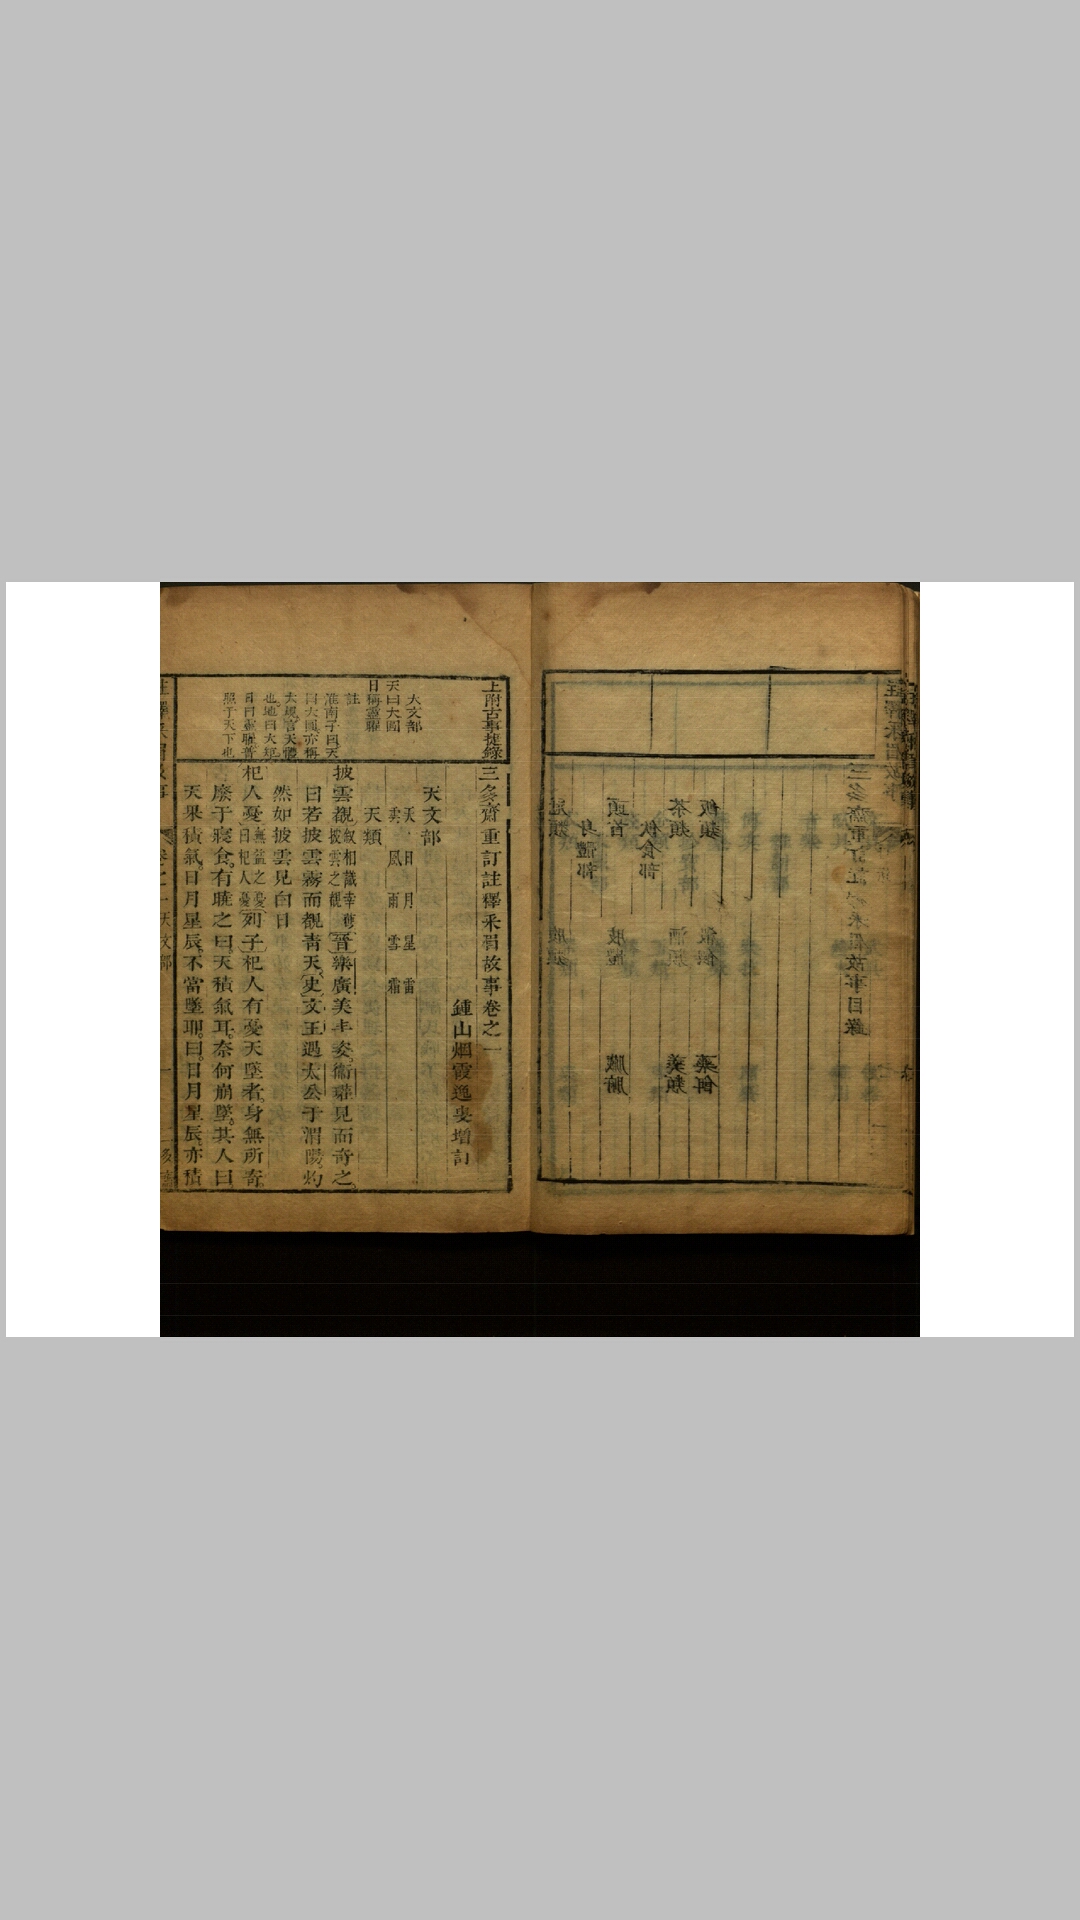 上附古事提錄
天文部
天曰大圓
日稱靈曜
註
淮南子曰天
曰大圓亦稱
大規言天體
也地曰大矩
日曰靈曜普
照乎天下也
三多齋重訂註釋采眉故事卷之一
鍾山烟霞逸叟增訂
天文部
天 日 月 星 雷
雲 風 雨 雪 霜
天類
披雲覩
叙相識幸 披雲之覩
晉樂廣美丰姿衞瓘見而奇之
曰若披雲霧而覩青天史文王遇太公于渭陽灼
然如披雲見白日
杞人憂
無益之憂 曰杞人憂
列子杞人有憂天墜者身無所寄
廢于寢食有曉之曰天積氣耳奈何崩墜其人曰
天果積氣日月星辰不當墜耶曰日月星辰亦積
三多齋重訂註釋采眉故事目錄
飯類
藥餌
茶類
酒類
羹類
飲食部
頭首
肢體
臟腑
身體部